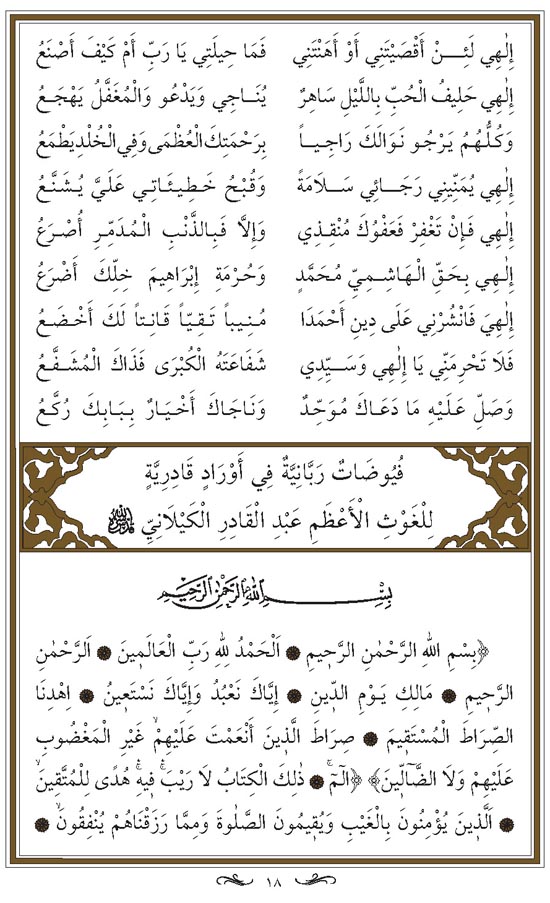 إِلٰهِي لَئِـنْ أَقْصَيْتَنِي أَوْ أَهَنْتَنِي فَمَا حِيلَتِي يَا رَبِّ أَمْ كَيْفَ أَصْنَعُ
إِلٰهِي حَلِيفُ الْحُبِّ بِاللَّيْلِ سَاهِرٌ يُنَاجِي وَيَدْعُو وَالْمُغَفَّلُ يَهْجَعُ
وَكُلُّهُمُ يَرْجُو نَوَالَكَ رَاجِياً بِرَحْمَتِكَ الْعُظْمَى وَفِي الْخُلْدِ يَطْمَعُ
إِلٰهِي يُمَنِّينِي رَجَائِي سَلَامَةً وَقُبْحُ خَطِيئَاتِي عَلَيَّ يُشَنَّعُ
إِلٰهِي فَإِنْ تَغْفِرْ فَعَفْوُكَ مُنْقِذِي وَإِلَّا فَبِالذَّنْبِ الْمُدَمِّرِ أُصْرَعُ
إِلٰهِي بِحَقِّ الْهَاشِمِيِّ مُحَمَّدٍ وَحُرْمَةِ إِبْرَاهِيمَ خِلِّكَ أَضْرَعُ
إِلٰهِيَ فَانْشُرْنِي عَلَى دِينِ أَحْمَدَا مُنِيباً تَقِيّاً قَانِتاً لَكَ أَخْضَعُ
فَلَا تَحْرِمَنِّي يَا إِلٰهِي وَسَيِّدِي شَفَاعَتَهُ الْكُبْرَى فَذَاكَ الْمُشَفَّعُ
وَصَلِّ عَلَيْهِ مَا دَعَاكَ مُوَحِّدٌ وَنَاجَاكَ أَخْيَارٌ بِبَابِكَ رُكَّعُ
فُيُوضَاتٌ رَبَّانِيَّةٌ فِي أَوْرَادِ قَادِرِيَّةٍ
لِلْغَوْثِ الْأَعْظَمِ عَبْدِ الْقَادِرِ الْكَيْلَانِيِّ
بِسْمِ اللهِ الرَّحْمٰنِ الرَّحِيمِ
﴿بِسْمِ اللهِ الرَّحْمٰنِ الرَّحِيمِ ۞ اَلْحَمْدُ لِلهِ رَبِّ الْعَالَمِينَ ۞ اَلرَّحْمٰنِ
الرَّحِيمِ ۞ مَالِكِ يَوْمِ الدِّينِ ۞ إِيَّاكَ نَعْبُدُ وَإِيَّاكَ نَسْتَعِينُ ۞ اهْدِنَا
الصِّرَاطَ الْمُسْتَقِيمَ ۞ صِرَاطَ الَّذِينَ أَنْعَمْتَ عَلَيْهِمْ غَيْرِ الْمَغْضُوبِ
عَلَيْهِمْ وَلَا الضَّآلِّينَ﴾ ﴿الٓمٓ ۞ ذٰلِكَ الْكِتَابُ لَا رَيْبَۛ فِيهِۛ هُدًى لِلْمُتَّقِينَۙ
۞ اَلَّذِينَ يُؤْمِنُونَ بِالْغَيْبِ وَيُقِيمُونَ الصَّلٰوةَ وَمِمَّا رَزَقْنَاهُمْ يُنْفِقُونَۙ ۞
١٨